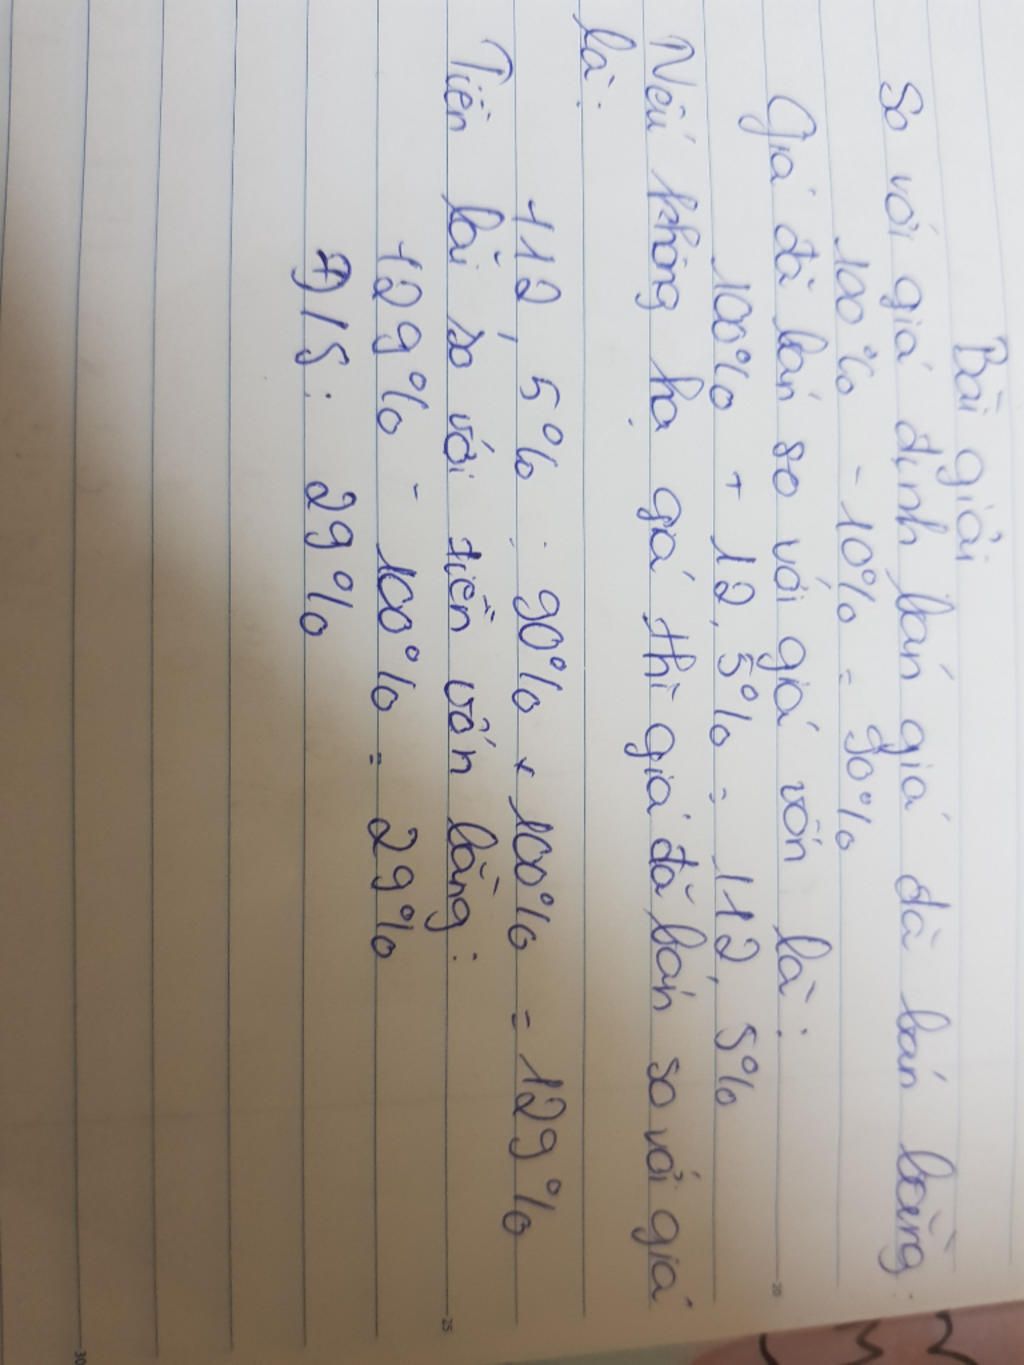 Bài giải
So với giá định bán giá đã bán bằng:
100% - 10% = 90%
Giá đã bán so với giá vốn là:
100% + 12,5% = 112,5%
Nếu không hạ giá thì giá đã bán so với giá
là:
112,5% : 90% x 100% = 129%
Tiền lãi so với tiền vốn bằng:
129% - 100% = 29%
Đ/S: 29%
20
25
30